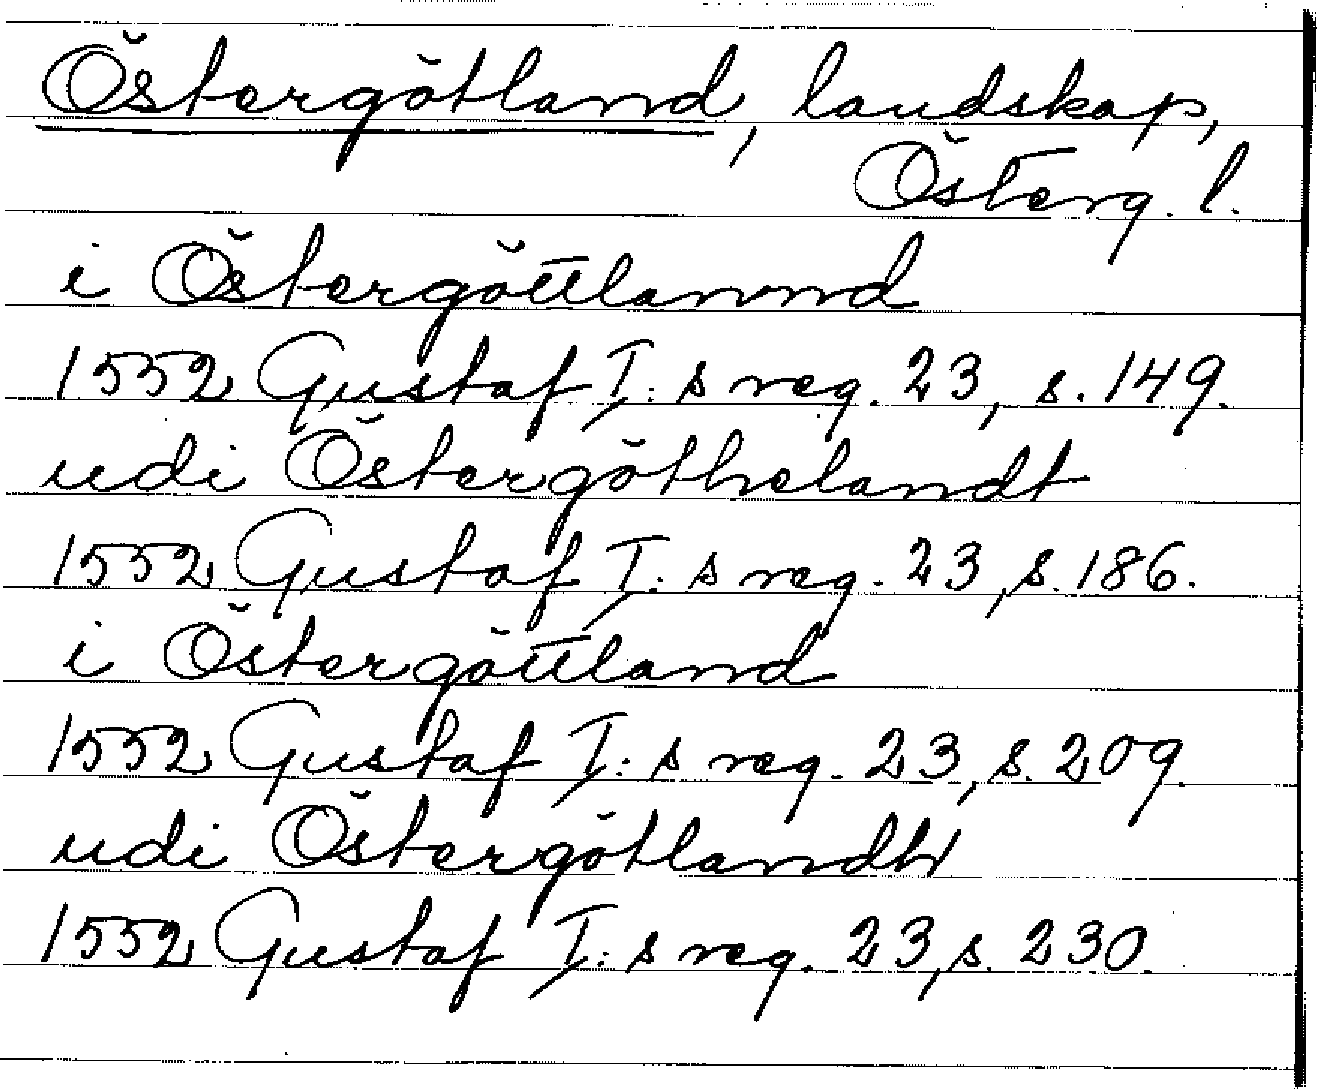 Östergötland, landskap,
Österg. l.
i Östergöttlannd
1552 Gustaf I:s reg. 23, s. 149.
udi Östergöthelandt
1552 Gustaf I:s reg. 23, s. 186.
i Östergöttland
1552 Gustaf I:s reg. 23, s. 209.
udi Östergötlandh
1552 Gustaf I:s reg. 23, s. 230.